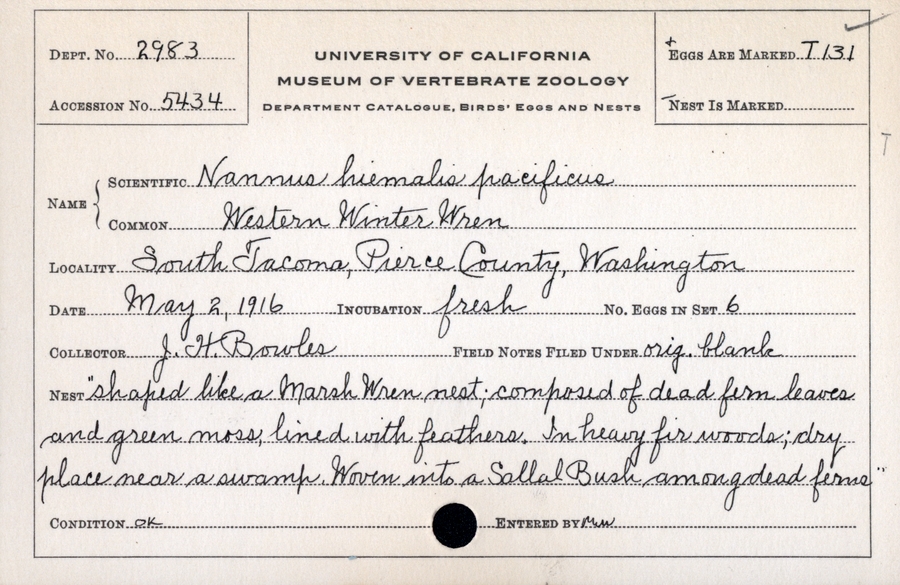 Dept. No. 2983
Accession No. 5434
UNIVERSITY OF CALIFORNIA
MUSEUM OF VERTEBRATE ZOOLOGY
Department Catalogue, Birds' Eggs and Nests
+ Eggs Are Marked T131
Nest Is Marked
T
Name
Scientific Nannus hiemalis pacificus
Common Western Winter Wren
Locality South Tacoma, Pierce County, Washington
Date May 2, 1916 Incubation fresh No. Eggs in Set 6
Collector J. H. Bowles Field Notes Filed Under orig. blank
Nest "shaped like a Marsh Wren nest; composed of dead fern leaves
and green moss, lined with feathers. In heavy fir woods; dry
place near a swamp. Woven into a Sallal Bush among dead ferns"
Condition OK Entered by